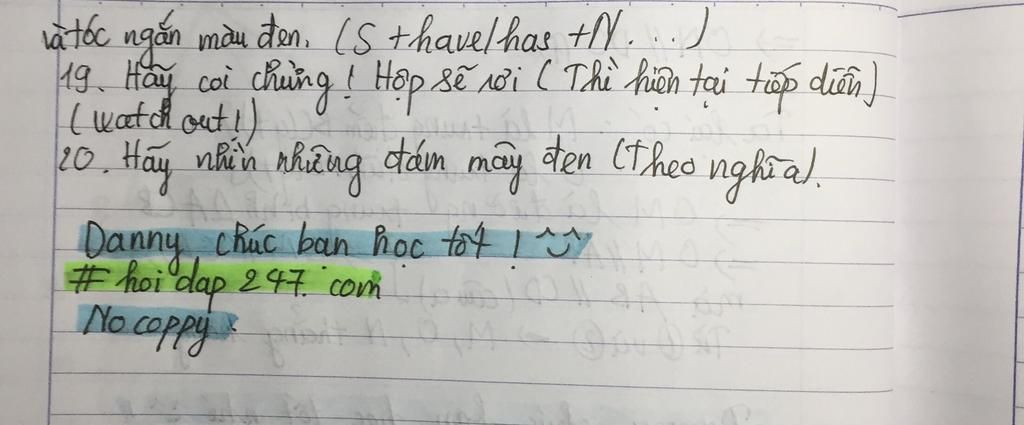 và tóc ngắn màu đen. (S + have/has + N...)
19. Hãy coi chừng! Hộp sẽ rơi (Thì hiện tại tiếp diễn)
(Watch out!)
20. Hãy nhìn những đám mây đen (Theo nghĩa).
Danny chúc bạn học tốt! ^^
# hoi dap 247. com
No coppy.